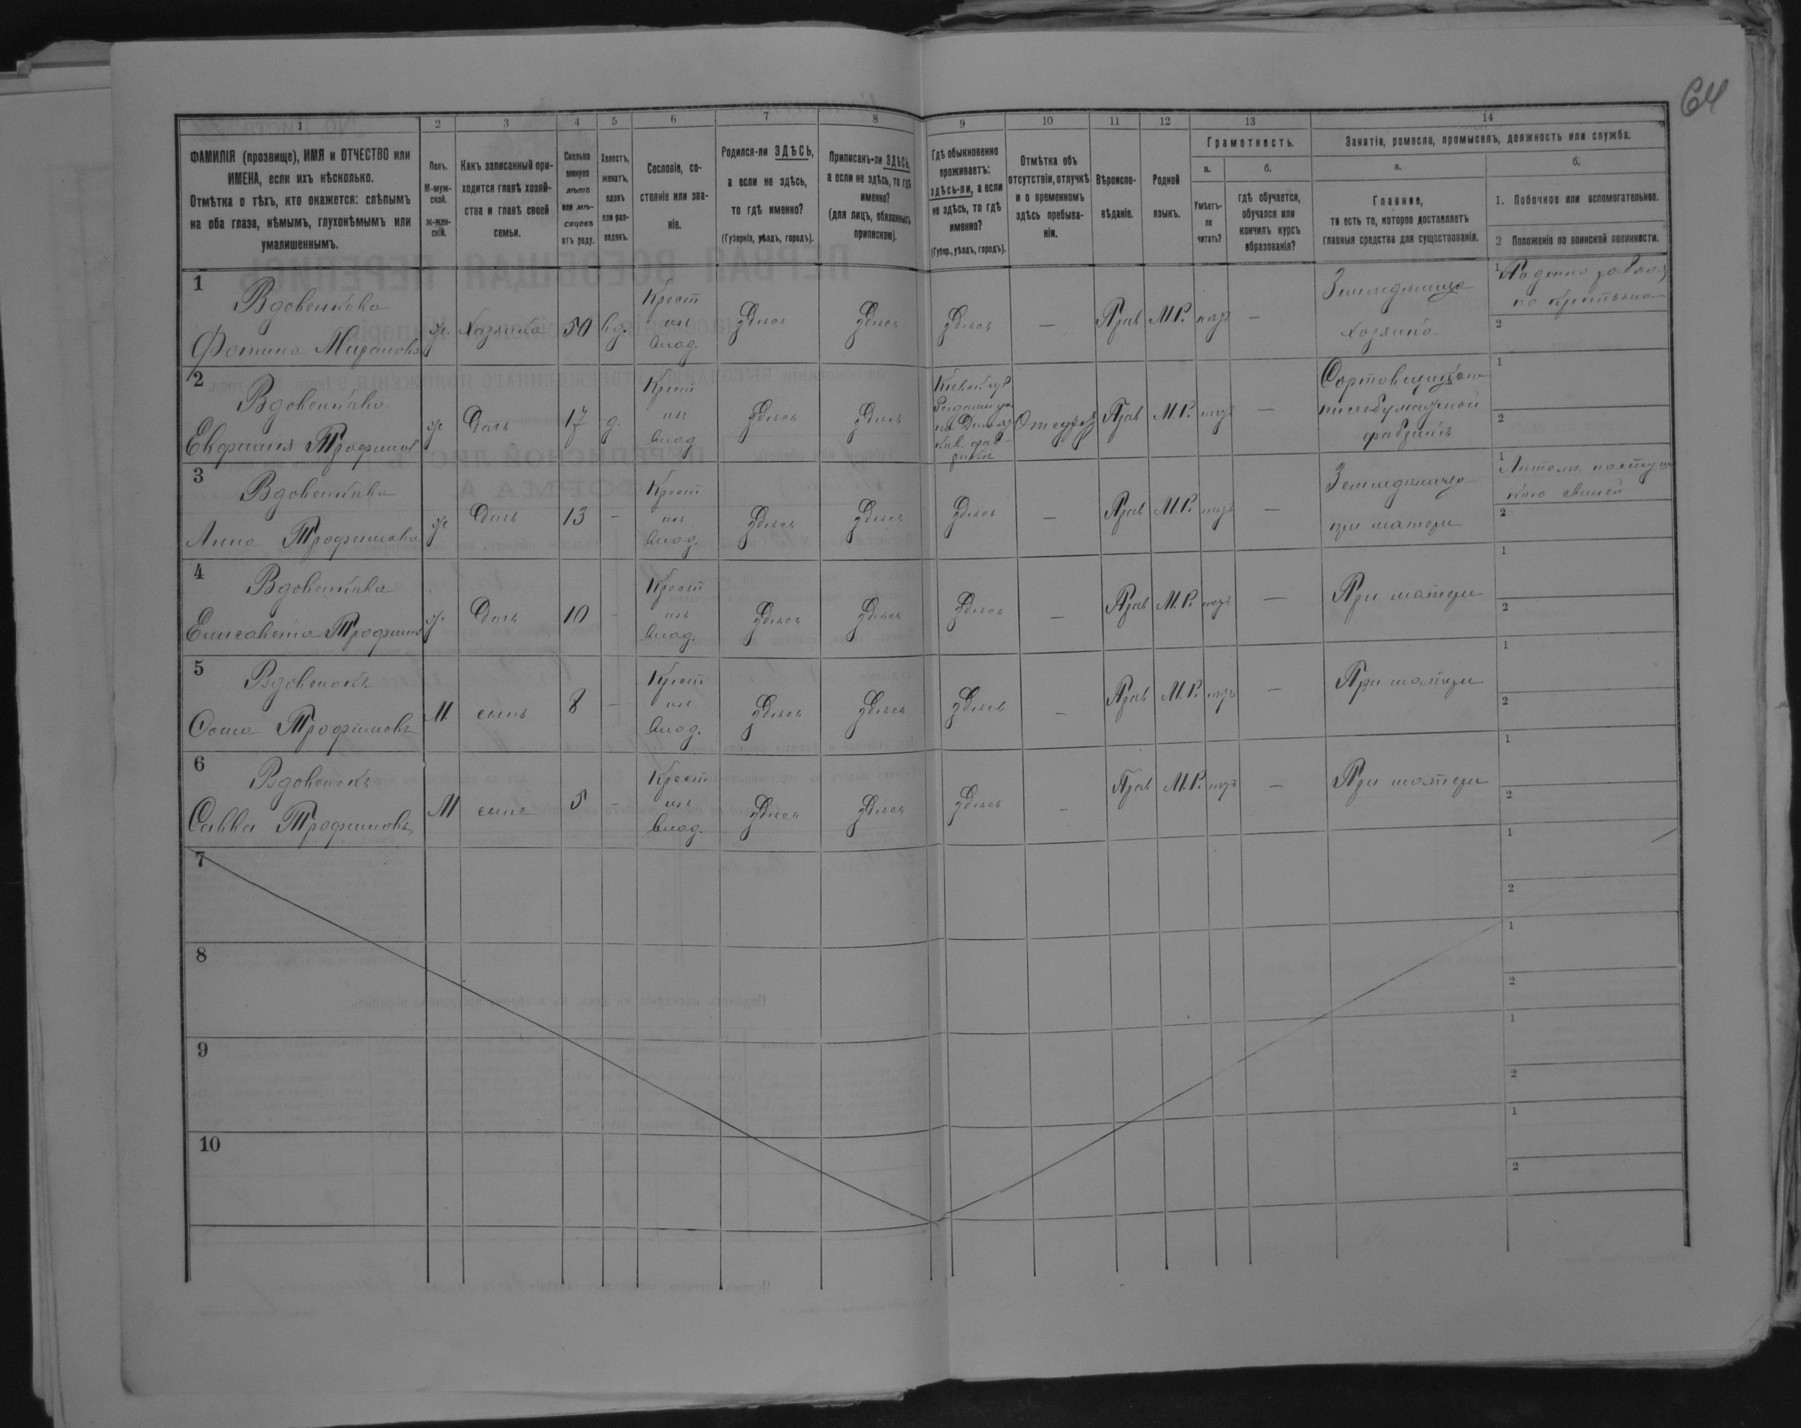 64
1 2 3 4 5 6 7 8 9 10 11 12 13 14
ФАМИЛІЯ (прозвище), ИМЯ и ОТЧЕСТВО или
ИМЕНА, если ихъ нѣсколько.
Отмѣтка о тѣхъ, кто окажется: слѣпымъ
на оба глаза, нѣмымъ, глухонѣмымъ или
умалишеннымъ.
Полъ.
М-муж-
ской.
Ж-жен-
скій.
Какъ записанный при-
ходится главѣ хозяй-
ства и главѣ своей
семьи.
Сколько
минуло
лѣтъ
или мѣ-
сяцевъ
отъ роду.
Холостъ,
женатъ,
вдовъ
или раз-
веденъ.
Сословіе, со-
стояніе или зва-
ніе.
Родился-ли ЗДѢСЬ,
а если не здѣсь,
то гдѣ именно?
(Губернія, уѣздъ, городъ).
Приписанъ-ли ЗДѢСЬ,
а если не здѣсь, то гдѣ
именно?
(для лицъ, обязанныхъ
припискою).
Гдѣ обыкновенно
проживаетъ:
здѣсь-ли, а если
не здѣсь, то гдѣ
именно?
(Губер., уѣздъ, городъ).
Отмѣтка объ
отсутствіи, отлучкѣ
и о временномъ
здѣсь пребыва-
ніи.
Вѣроиспо-
вѣданіе.
Родной
языкъ.
Грамотность.
а.
Умѣетъ-
ли
читать?
б.
гдѣ обучается,
обучался или
кончилъ курсъ
образованія?
Занятіе, ремесло, промыселъ, должность или служба.
а.
Главное,
то есть то, которое доставляетъ
главныя средства для существованія.
б.
1. Побочное или вспомогательное.
2 Положеніе по воинской повинности.
1
Вдовенкова
Фотина Миронова
ж
Хозяйка
50
вд.
Крест
изъ
влад.
Здѣсь
Здѣсь
Здѣсь
—
Прав
М.Р.
нѣтъ
—
Земледѣлица
хозяйка
1
2
2
Вдовенкова
Ефросинія Трофимов
ж
Дочь
17
д.
Крест
изъ
влад
Здѣсь
Здѣсь
Кіевской губ
Прав
М.Р.
нѣтъ
—
писчебумажной
фабрикѣ
1
2
3
Вдовенкова
Анна Трофимова
ж
Дочь
13
—
Крест
изъ
влад.
Здѣсь
Здѣсь
Здѣсь
—
Прав
М.Р.
нѣтъ
—
Земледѣлица
при матери
1
2
4
Вдовенкова
Елисавета Трофимов
ж.
Дочь
10
—
Крест
изъ
влад.
Здѣсь
Здѣсь
Здѣсь
—
Прав
М.Р.
нѣтъ
—
При матери
1
2
5
Вдовенокъ
Трофимовъ
М
сынъ
8
—
Крест
изъ
влад.
Здѣсь
Здѣсь
Здѣсь
—
Прав
М.Р.
нѣтъ
—
При матери
1
2
6
Вдовенокъ
Савва Трофимовъ
М
сынъ
5
—
Крест
изъ
влад.
Здѣсь
Здѣсь
Здѣсь
—
Прав
М.Р.
нѣтъ
—
При матери
1
2
7
1
2
8
1
2
9
1
2
10
1
2